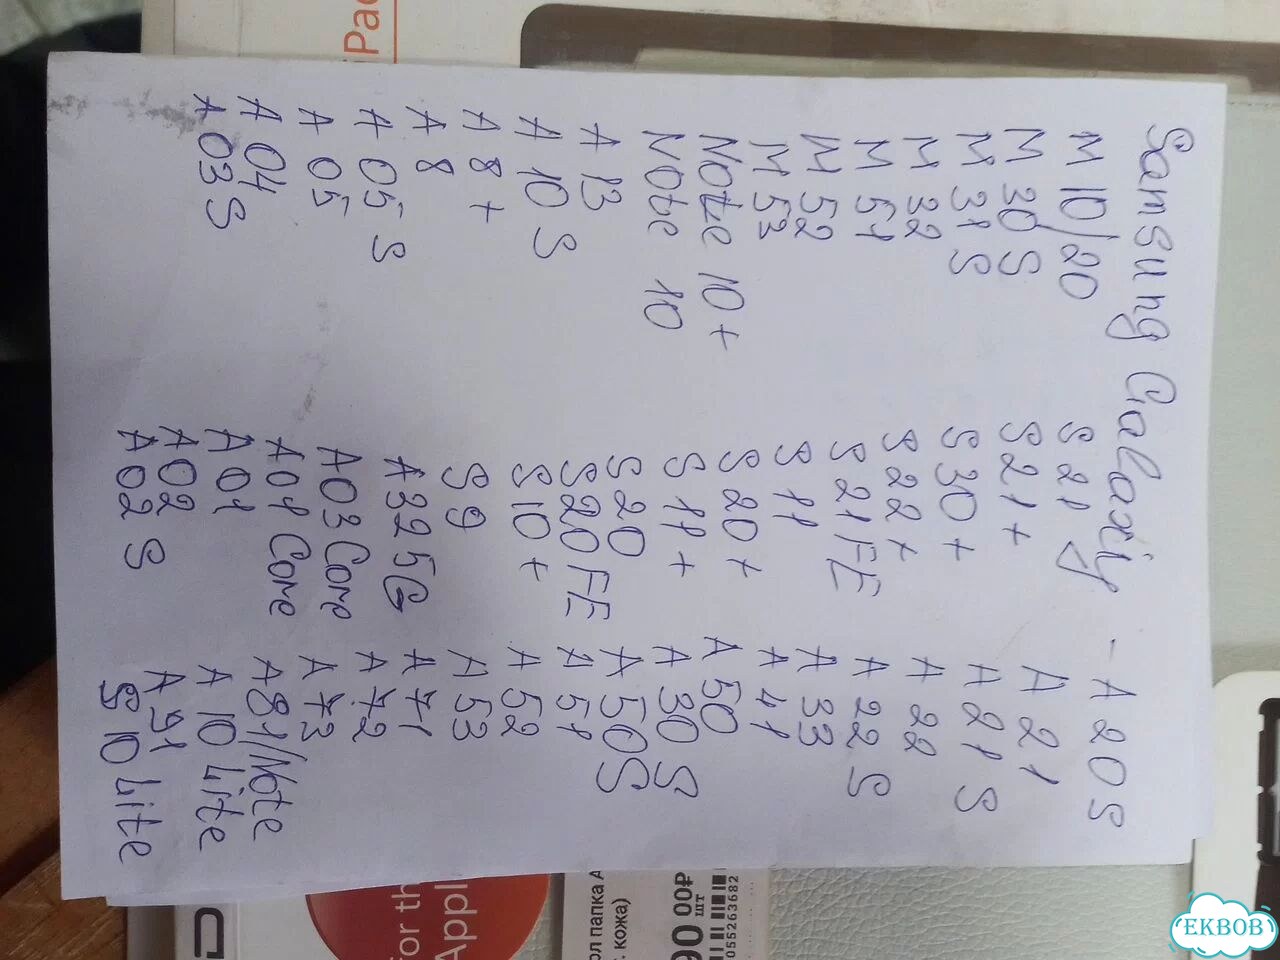 Samsung Galaxy - A 20 S
M 10/20
M 30 S
M 31 S
M 32
M 51
M 52
M 53
Note 10+
Note 10
A 13
A 10 S
A 8+
A 8
A 05 S
A 05
A 04
A 03 S
S 21
S 21+
S 30+
S 22+
S 21 FE
S 11
S 20+
S 11+
S 20
S20 FE
S10+
S 9
A 32 5G
A 03 Core
A 01 Core
A 01
A 02
A 02 S
A 21
A 21 S
A 22
A 22 S
A 33
A 41
A 50
A 30 S
A 50 S
A 51
A 52
A 53
A 71
A 72
A 73
A 81/Note
A 10 Lite
A 91
S 10 Lite
for th
Appl
ол папка A
. кожа)
90 00₽
шт
055263682
EKBOB